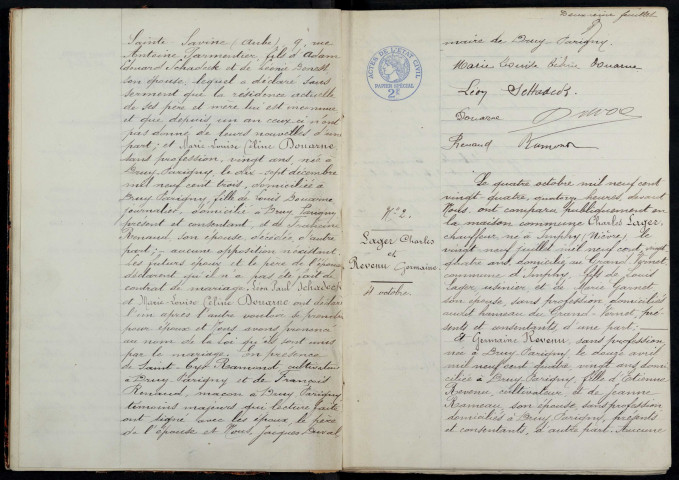 Sainte Savine (Aube) 9, rue
Antoine Parmentier, fils d'Adam
Edouard Schadeck et de Léonie Benoît
son épouse, lequel a déclaré sous
serment que la résidence actuelle
de ses père et mère lui est inconnue
et que, depuis un an ceux-ci n'ont
pas donné de leurs nouvelles d'une
part; et Marie Louise Céline Douarne,
sans profession, vingt ans, née à
Bruy Parigny, le dix-sept décembre
mil neuf cent trois, domiciliée à
Bruy Parigny, fille de Louis Douarne
journalier, domicilié à Bruy Parigny
présent et consentant, et de
Renaud, son épouse, décédée, d'autre
part; — aucune opposition n'existant.
Les futurs époux et le père de l'épouse
déclarent qu'il n'a pas été fait de
contrat de mariage. Léon Paul Schadeck
et Marie Louise Céline Douarne ont déclaré
l'un après l'autre vouloir se prendre
pour époux et Nous avons prononcé
au nom de la Loi qu'ils sont unis
par le mariage. En présence
de Saint-Cyr Ramond, cultivateur
à Bruy Parigny et de François
Renaud, maçon à Bruy Parigny
témoins majeurs qui lecture faite
ont signé avec les époux, le père
de l'épouse et Nous, Jacques Duval
Deuxième feuillet
maire de Bruy-Parigny.
Marie Louise Céline Douarne
Léon Schadeck
Douarne Duval
Renaud Ramond
ACTES DE L'ETAT CIVIL
PAPIER SPÉCIAL
2F
N° 2.
Lager Charles
et
Revenu Germaine
4 octobre
Le quatre octobre mil neuf cent
vingt-quatre, quatorze heures, devant
Nous, ont comparu publiquement en
la maison commune Charles Lager,
chauffeur, né à Imphy (Nièvre) le
vingt neuf juillet mil neuf cent, vingt
quatre ans, domicilié au Grand Vernet
commune d'Imphy, fils de Louis
Lager, usinier, et de Marie Garnet
son épouse, sans profession, domiciliés
audit hameau du Grand-Vernet, pré-
sents et consentants d'une part; —
& Germaine Revenu, sans profession,
née à Bruy Parigny le douze avril
mil neuf cent quatre, vingt ans domi-
ciliée à Bruy Parigny, fille d'Etienne
Revenu, cultivateur et de Jeanne
Rameau son épouse, sans profession
domiciliés à Bruy Parigny, présents
et consentants, d'autre part. Aucune